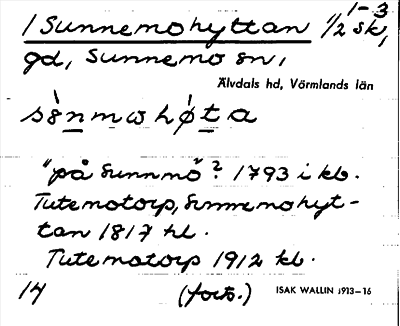 1-3
/ Sunnemohyttan 1/2 sk,
gd, Sunnemo sn,
Älvdals hd, Värmlands län
"på Sunnmo"? 1793 i kb.
Tutemotorp, Sunnemohyt-
tan 1817 hl.
Tutemotorp 1912 kb.
14 (forts.) ISAK WALLIN 1913-16